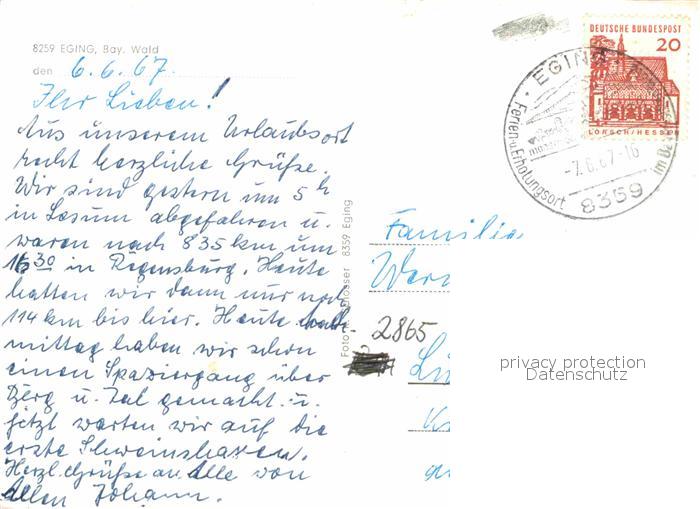 8259 EGING, Bay. Wald
den 6.6.67.
Ihr Lieben!
Aus unserem Urlaubsort
recht herzliche Grüße.
Wir sind gestern um 5 h
in Lesum abgefahren u.
waren nach 835 km um
16 30 in Regensburg. Heute
hatten wir dann nur noch
114 km bis hier. Heute
mittag haben wir schon
einen Spaziergang über
Berg u. Tal gemacht u.
jetzt warten wir auf die
erste Schweinshaxen.
Herzl. Grüße an Alle von
Allen Johann.
8359 Eging
DEUTSCHE BUNDESPOST
20
LORSCH/HESSEN
EGING
Ferien- u. Erholungsort
-7.6.67-16
8359
Familie
2865
privacy protection
Datenschutz